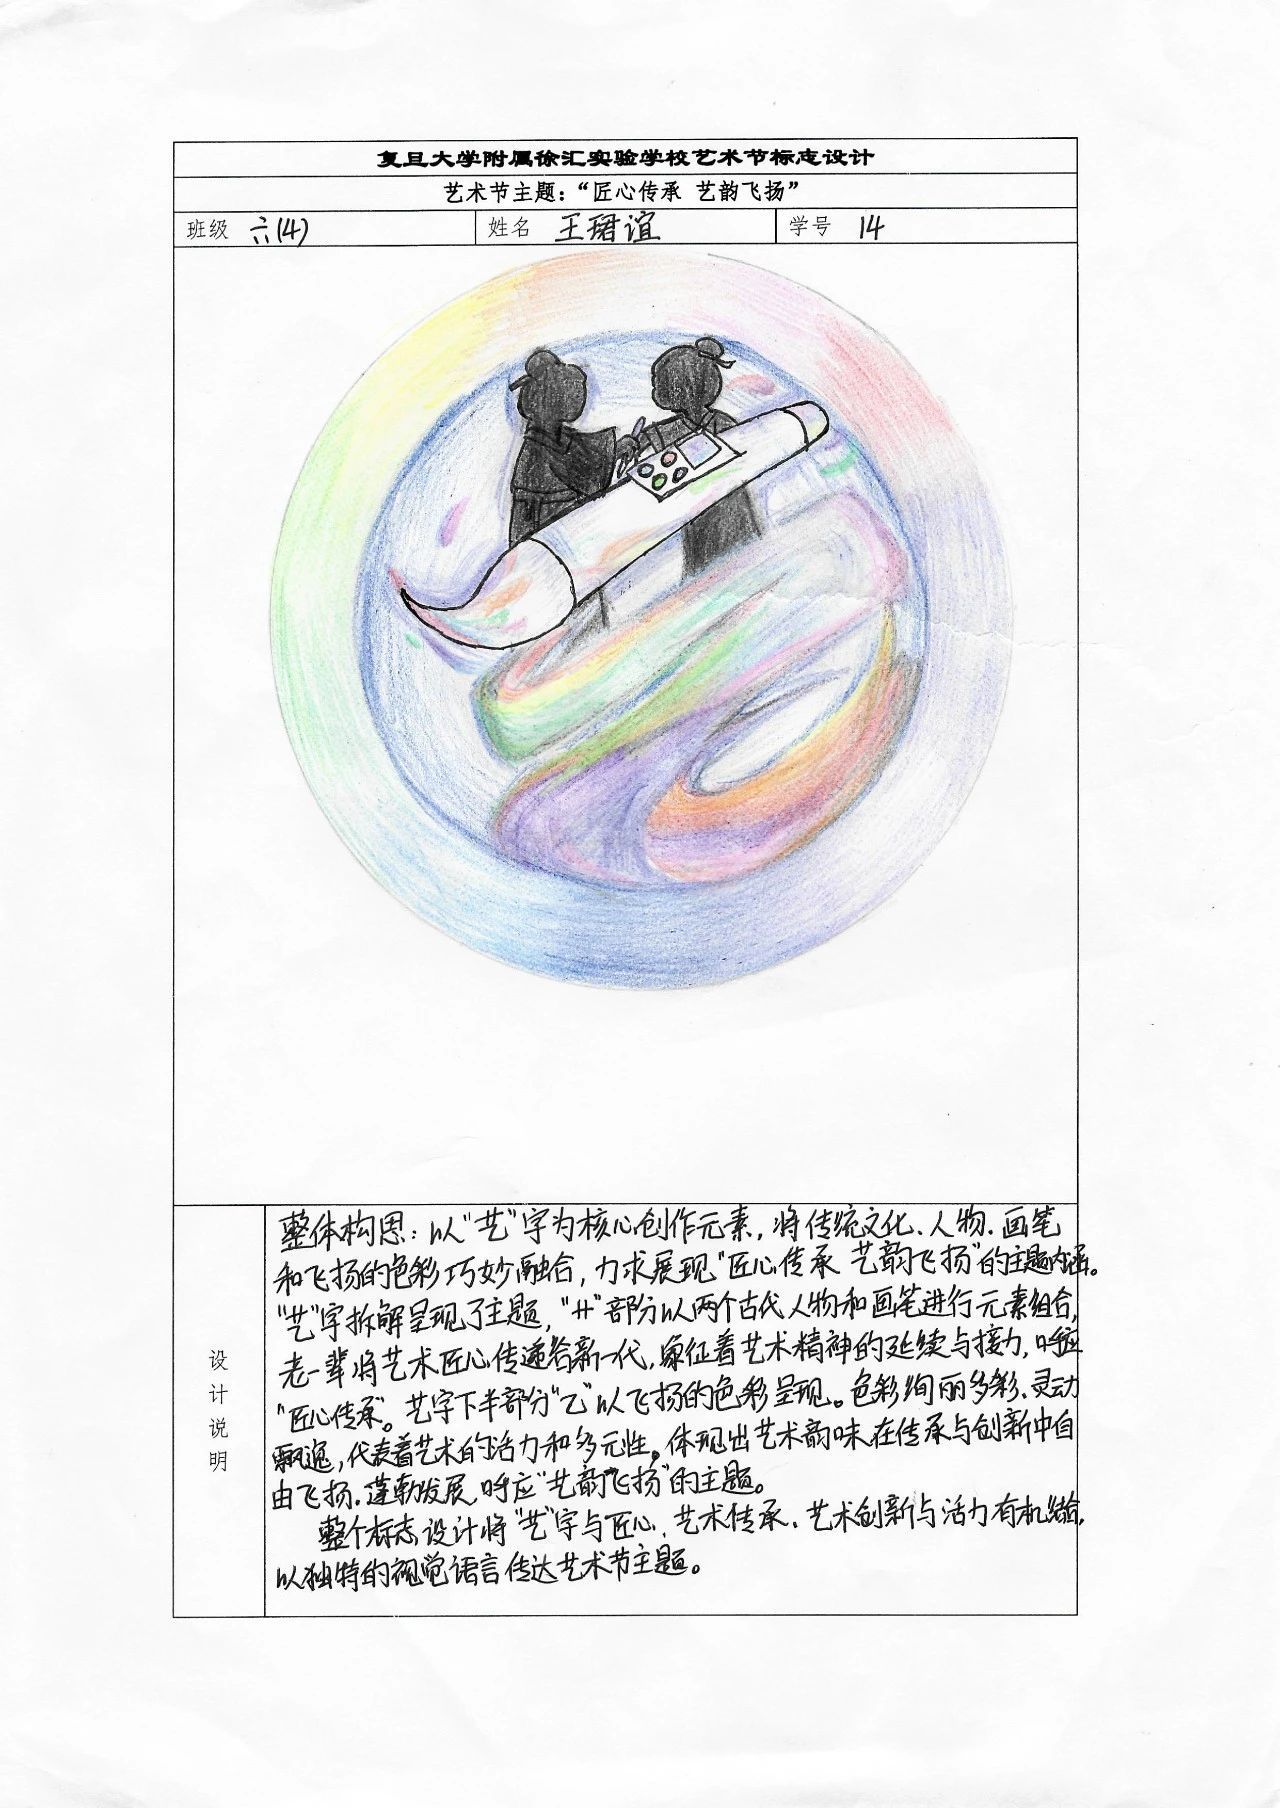 复旦大学附属徐汇实验学校艺术节标志设计
艺术节主题：“匠心传承 艺韵飞扬”
班级 六(4) 姓名 王珺谊 学号 14
设计说明
整体构思：以“艺”字为核心创作元素，将传统文化、人物、画笔
和飞扬的色彩巧妙融合，力求展现“匠心传承 艺韵飞扬”的主题内涵。
“艺”字拆解呈现了主题，“艹”部分以两个古代人物和画笔进行元素组合，
老一辈将艺术匠心传递给新一代，象征着艺术精神的延续与接力，呼应
“匠心传承”。艺字下半部分“乙”以飞扬的色彩呈现。色彩绚丽多彩、灵动
飘逸，代表着艺术的活力和多元性。体现出艺术韵味在传承与创新中自
由飞扬、蓬勃发展，呼应“艺韵飞扬”的主题。
整个标志设计将“艺”字与匠心、艺术传承、艺术创新与活力有机结合，
以独特的视觉语言传达艺术节主题。